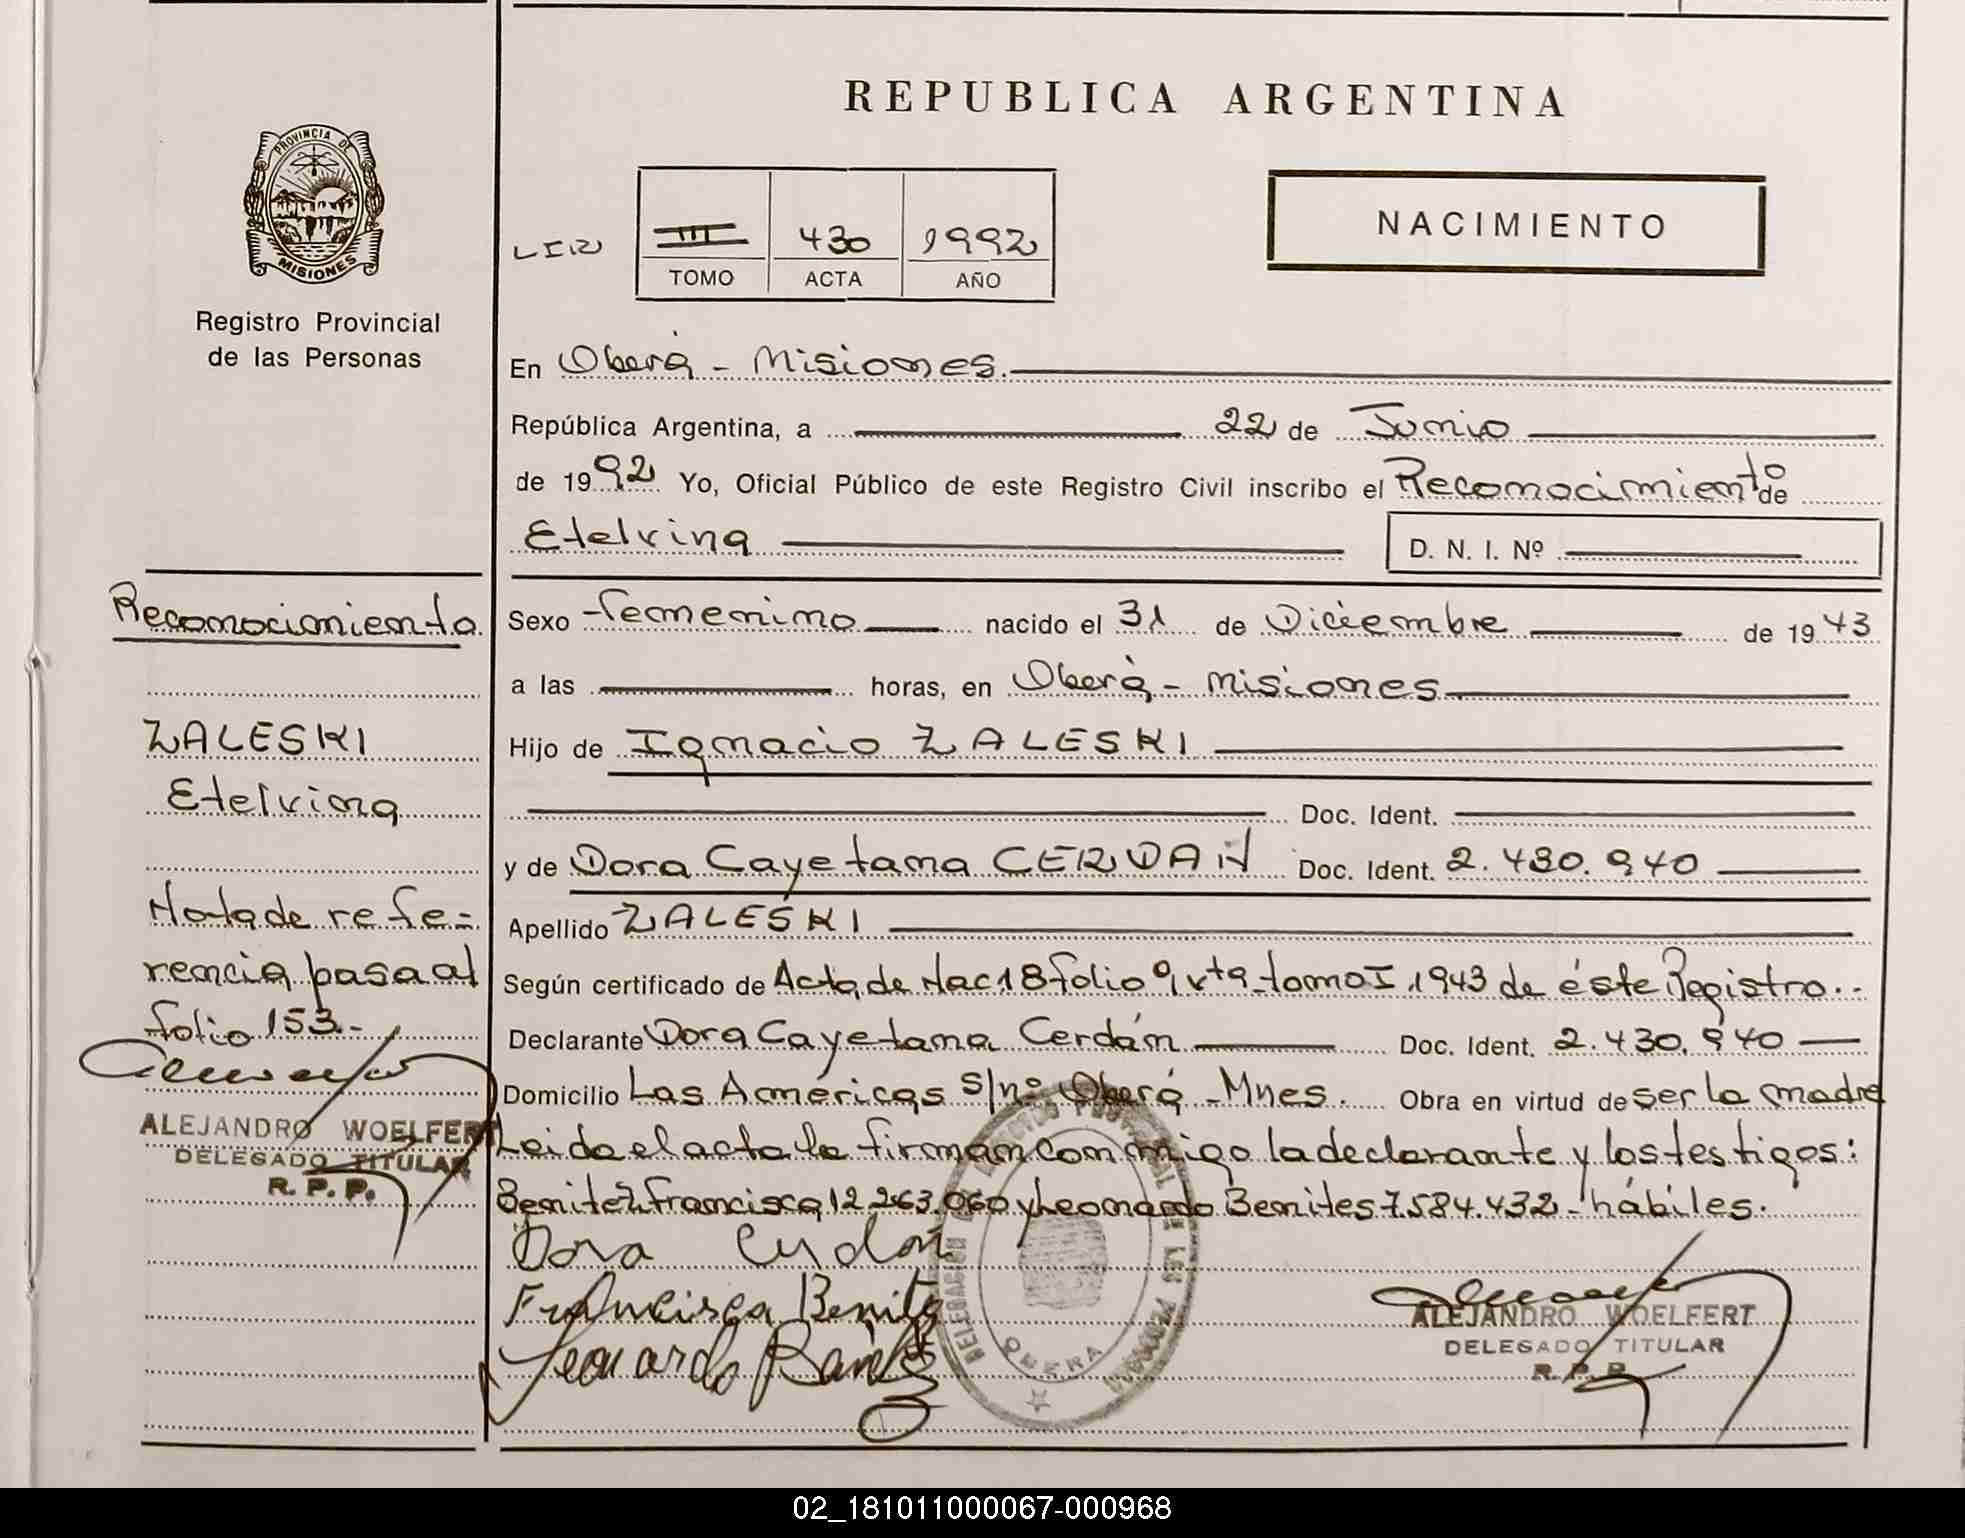 REPUBLICA ARGENTINA
PROVINCIA DE
MISIONES
Registro Provincial
de las Personas
NACIMIENTO
III 430 1992
TOMO ACTA AÑO
En Oberá - Misiones.
República Argentina, a 22 de Junio
de 1992 Yo, Oficial Público de este Registro Civil inscribo el Reconocimiento de
Etelvina
D. N. I. Nº
Reconocimiento
ZALESKI
Etelvina
Nota de refe-
rencia pasa al
folio 153.-
ALEJANDRO WOELFERT
DELEGADO TITULAR
R. P. P.
Sexo femenino nacido el 31 de Diciembre de 1943
a las horas, en Oberá - Misiones
Hijo de Ignacio ZALESKI
Doc. Ident.
y de Dora Cayetana CERDAN Doc. Ident. 2.430.940
Apellido ZALESKI
Según certificado de Acta de Nac 18 folio 9 vta tomo I 1943 de éste Registro.-
Declarante Dora Cayetana Cerdán Doc. Ident. 2.430.940
Domicilio Las Américas s/nº Oberá - Mnes. Obra en virtud de ser la madre
Leida el acta la firman conmigo la declarante y los testigos:
Benitez Francisca 12.263.060 y Leonardo Benites 7.584.432 - hábiles.
Dora Cerdan
Francisca Benitez
Leonardo
OBERA
ALEJANDRO WOELFERT
DELEGADO TITULAR
R. P. P.
02_181011000067-000968